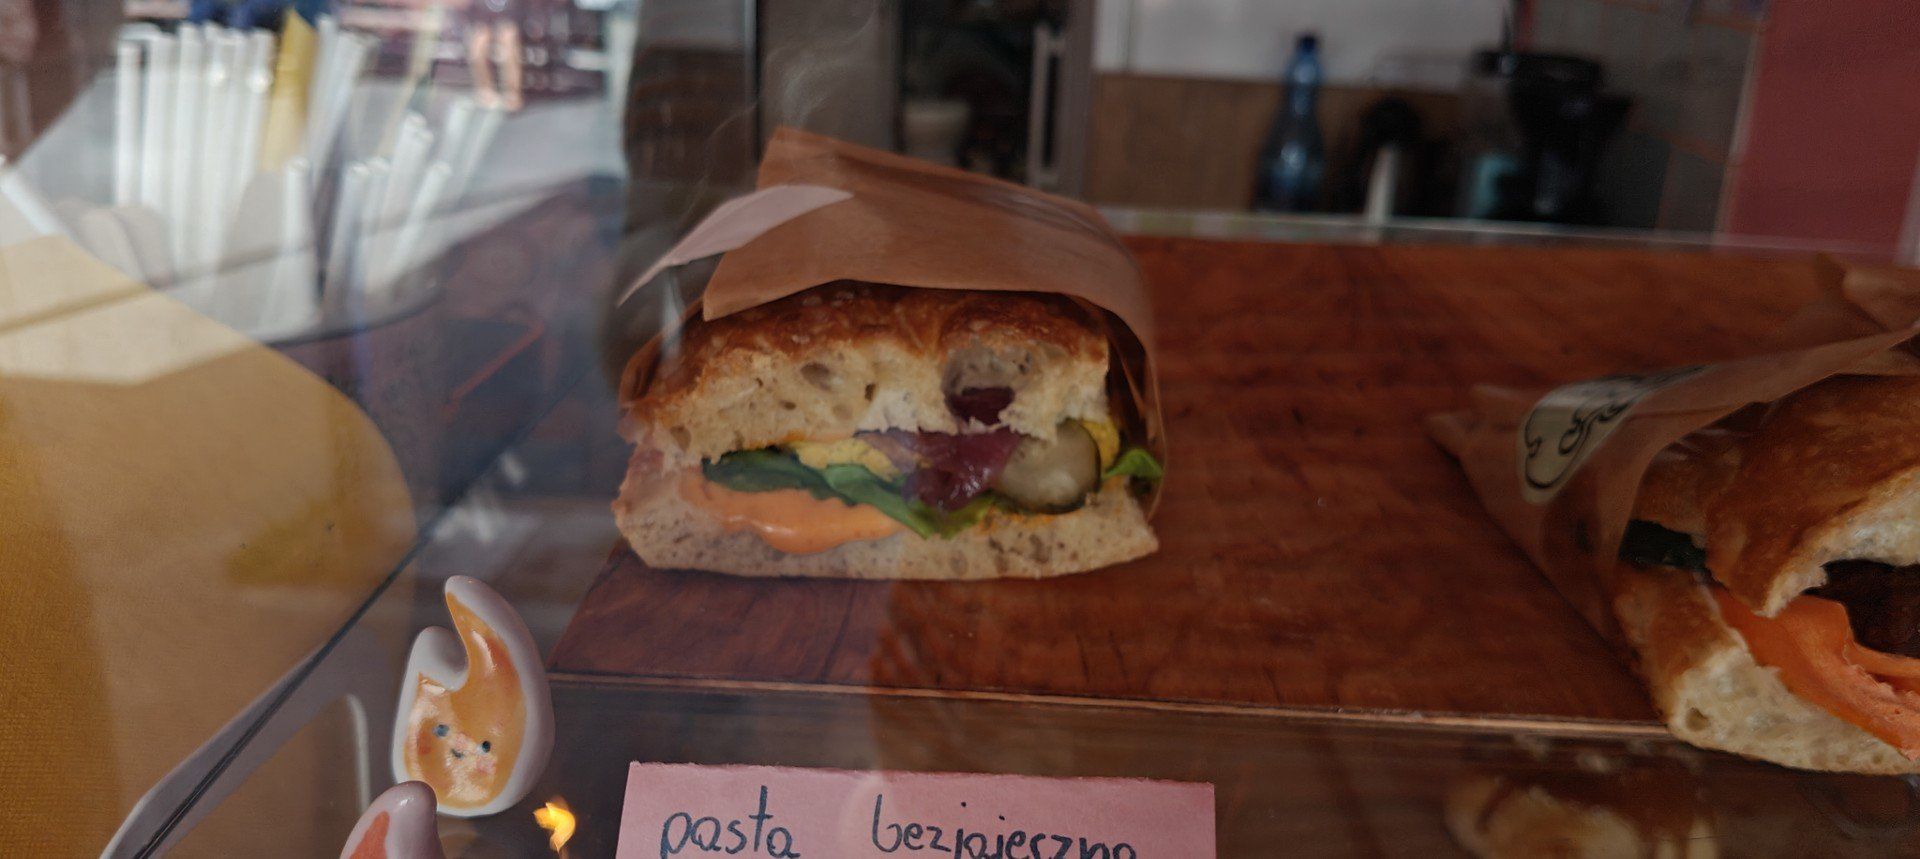 pasta bezjajeczna